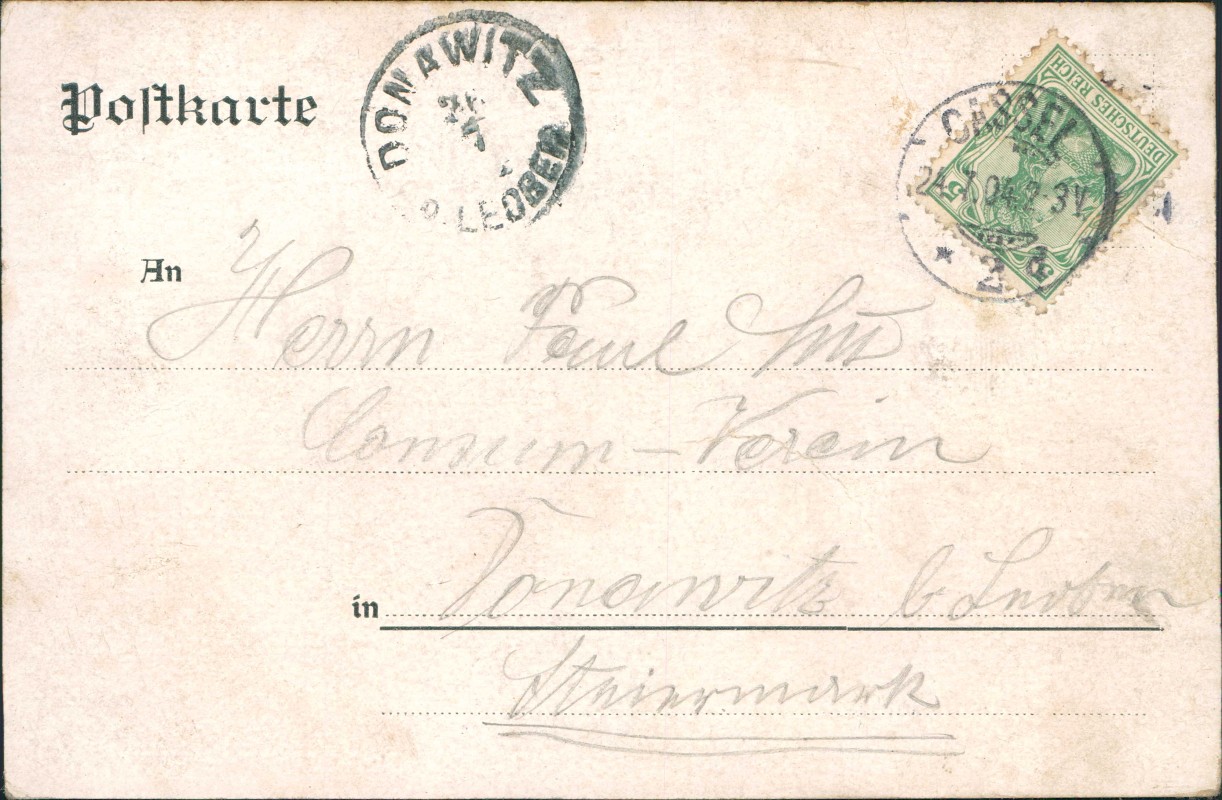 Postkarte
DONAWITZ
LEOBEN
CASSEL
24.7.04.2-3V
* 2 d
DEUTSCHES REICH
5
An
Herrn Paul
Consum-Verein
in Donawitz b. Leoben
Steiermark